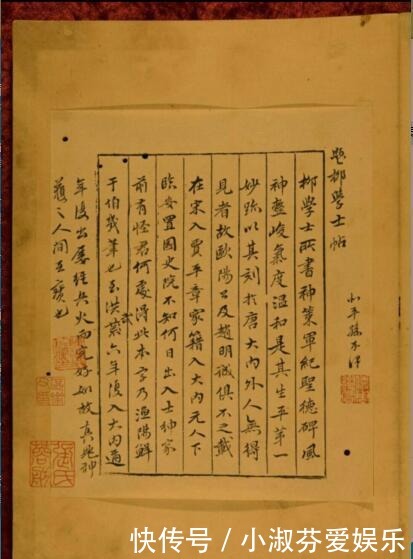 題柳學士帖
北平孫承澤
柳學士所書神策軍紀聖德碑風
神整峻氣度溫和是其生平第一
妙跡以其刻於唐大內外人無得
見者故歐陽公及趙明誠俱不之載
在宋入賈平章家籍入大內元人下
臨安置國史院不知何日出入士紳家
前有怪君何處得此本字乃漁陽鮮
于伯幾筆也至洪武六年復入大內
年復出屢經兵火而完好如故真鬼神
護之人間至寶也
快传号／小淑芬爱娱乐